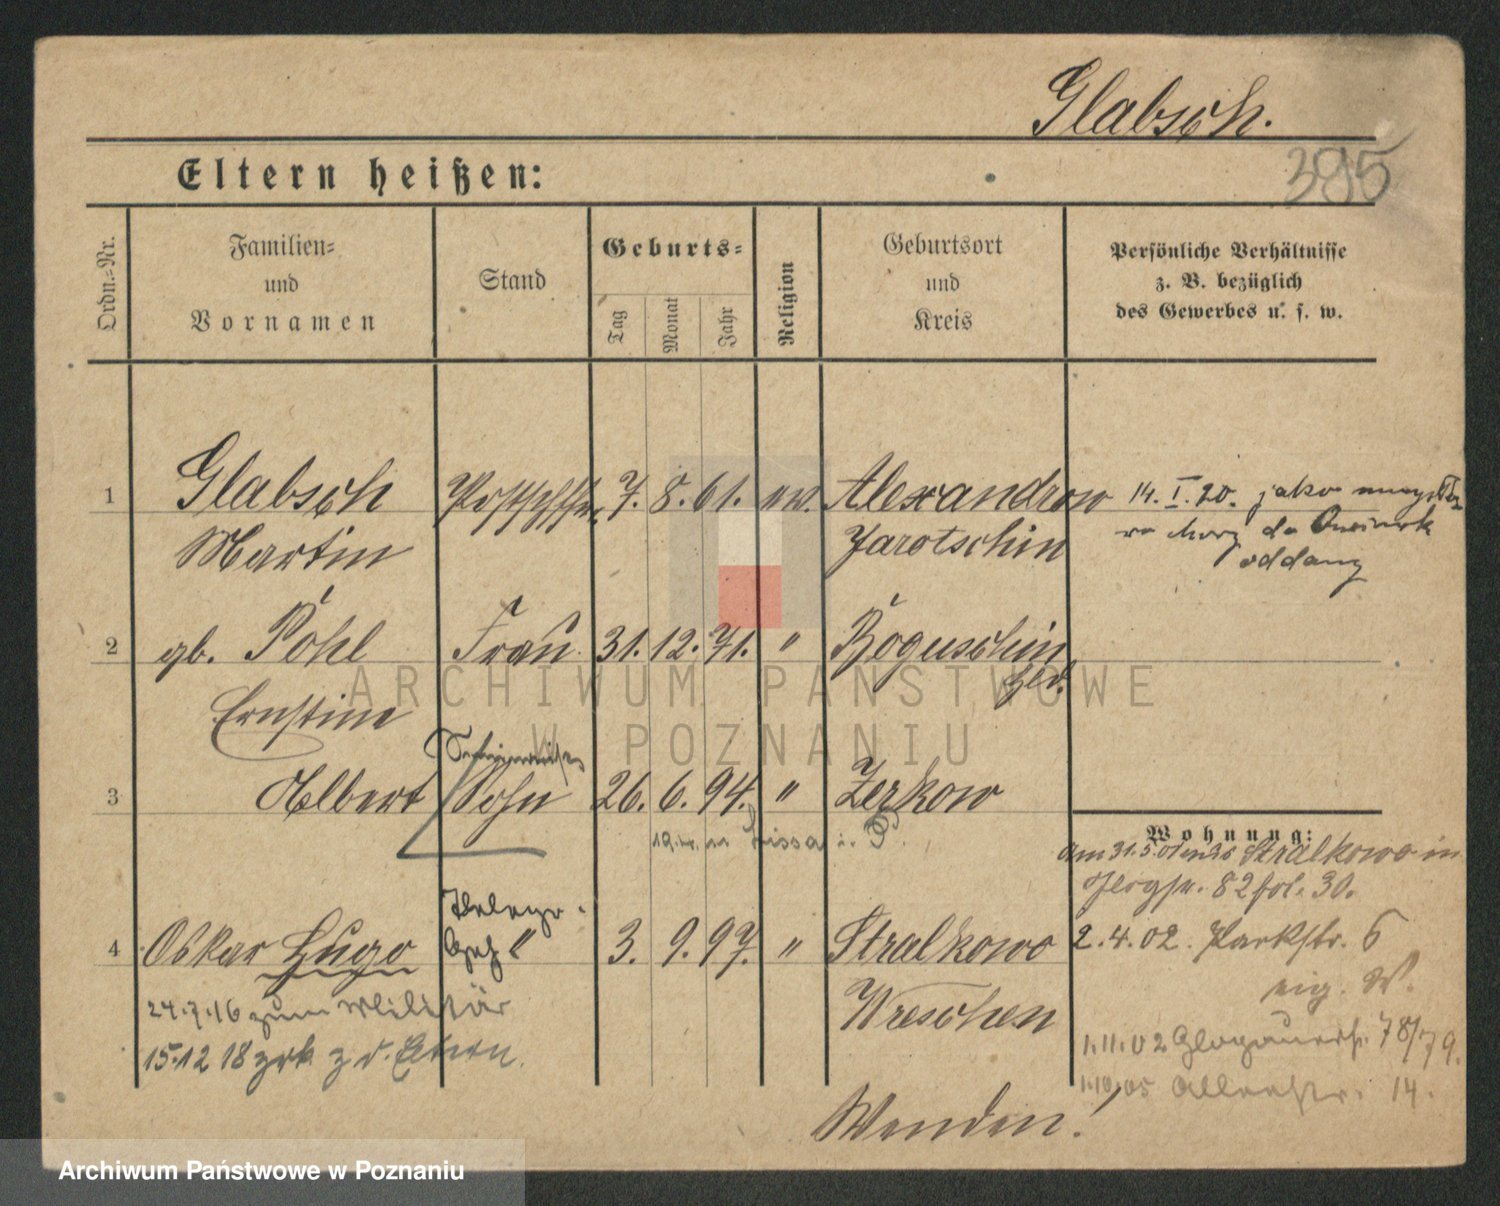 Glabsch.
395
Eltern heißen:
Ordn.=Nr.
Familien=
und
Vornamen
Stand
Geburts=
Tag
Monat
Jahr
Religion
Geburtsort
und
Kreis
Persönliche Verhältnisse
z. B. bezüglich
des Gewerbes u. s. w.
1 Glabsch 7. 8. 61. ev. Alexandrow 14. I. 20. jako
Martin Jarotschin do
oddany
2 gb. Pohl Frau 31. 12. 71. " Boguschin
Ernstine
3 Albert Sohn 26. 6. 94. " Zerkow
Lissa i. P.
Wohnung:
am 31.5.01 Stralkowo in
82 fol. 30.
4 Oskar Hugo " 3. 9. 97. " Stralkowo 2. 4. 02. Parkstr. 6
eig. W.
24.7.16 zum Militär Wreschen
1.11.02 Glogauerstr. 78/79.
15.12 18 zrk z d. Eltern.
1.10.05 14.
Wenden!
ARCHIWUM PAŃSTWOWE
W POZNANIU
Archiwum Państwowe w Poznaniu